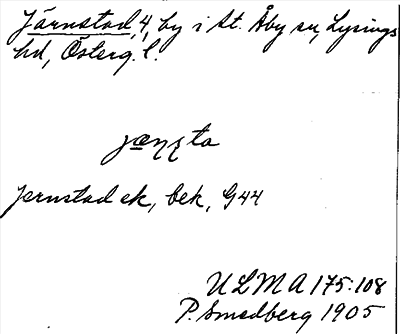 Järnstad, 4, by i St. Åby sn, Lysings
hd, Österg. l.
jernstad ek, bek, G44
ULMA 175:108
P. Smedberg 1905